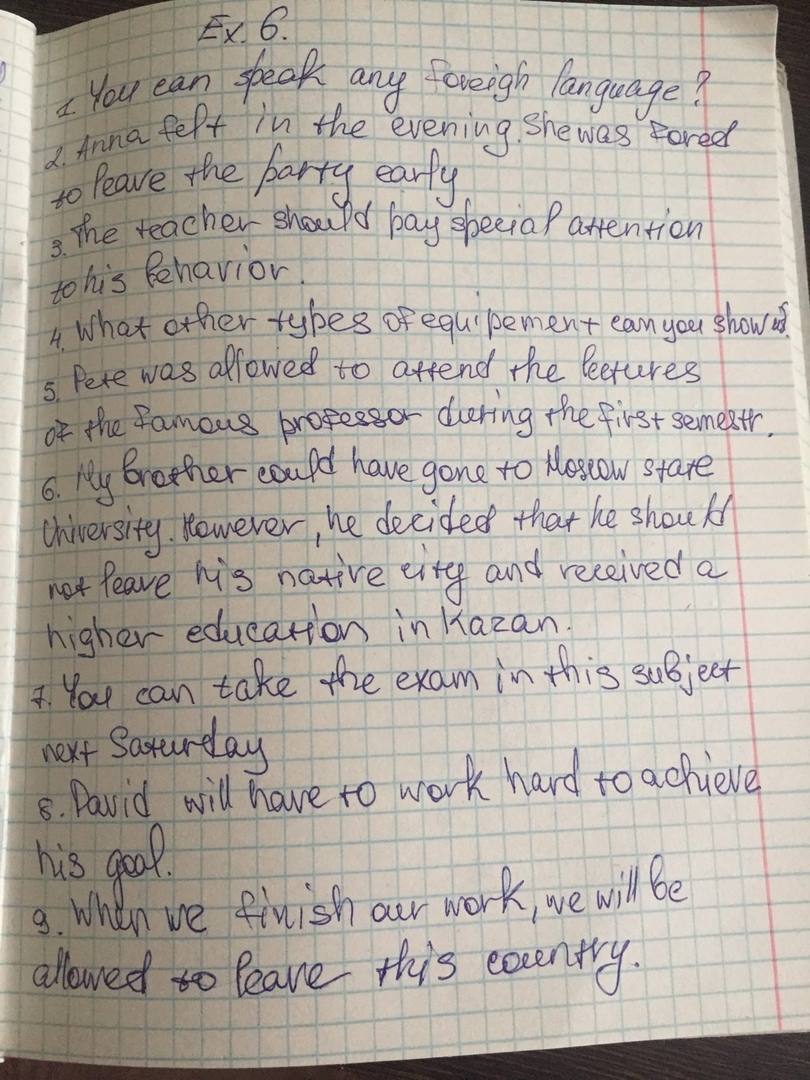 Ex. 6.
1. You can speak any foreigh language?
2. Anna felt in the evening. She was Fored
to leave the party early
3. The teacher should pay special attention
to his behavior.
4. What other types of equipement can you show us?
5. Pete was allowed to attend the lectures
of the famous professor during the first semestr.
6. My brother could have gone to Moscow state
University. However, he decided that he should
not leave his native city and received a
higher education in Kazan.
7. You can take the exam in this subject
next Saturday
8. David will have to work hard to achieve
his goal.
9. When we finish our work, we will be
allowed to leave this country.